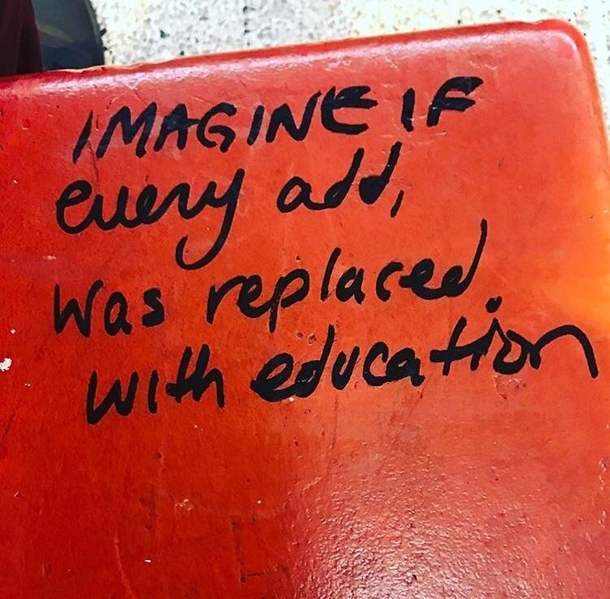 IMAGINE IF
every add,
was replaced
with education